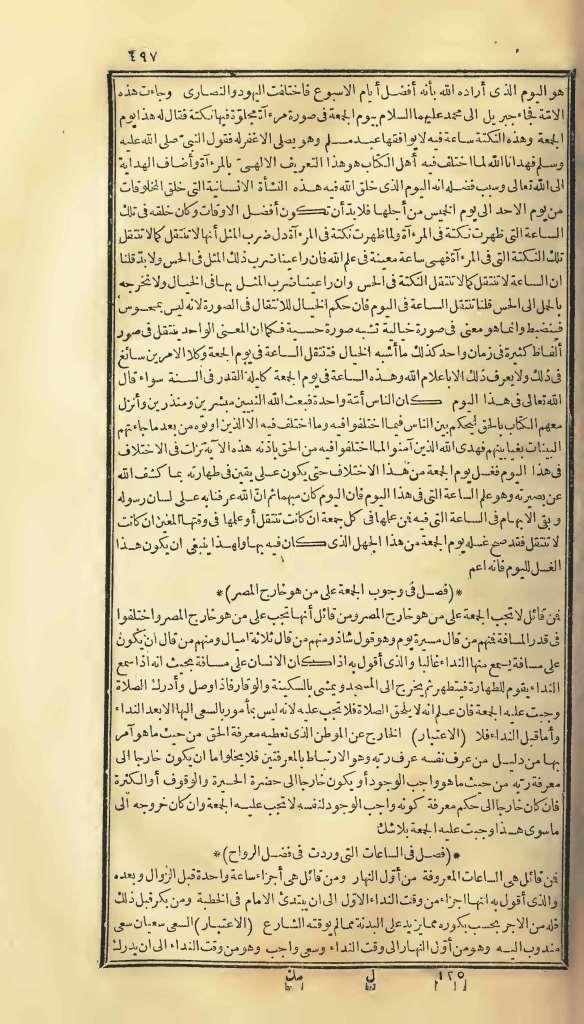 ٤٩٧
هو اليوم الذى أراده الله بأنه أفضل أيام الاسبوع فاختلفت اليهود والنصارى وجاءت هذه
الامّة فجاء جبريل الى محمد عليهما السلام بيوم الجمعة فى صورة مرءآة مجلوّة فيها نكتة فقال له هذا يوم
الجمعة وهذه النكتة ساعة فيه لا يوافقها عبد مسلم وهو يصلى الاغفر له فقول النبىّ صلى الله عليه
وسلم فهدانا الله لما اختلف فيه أهل الكتاب هو هذا التعريف الالهىّ بالمرءآة وأضاف الهداية
الى الله تعالى وسبب فضله انه اليوم الذى خلق الله فيه هذه النشأة الانسانية التى خلق المخلوقات
من يوم الاحد الى يوم الخميس من أجلها فلابدّ أن تكون أفضل الاوقات وكان خلقه فى تلك
الساعة التى ظهرت نكتة فى المرءآة ولما ظهرت نكتة فى المرءآة دل ضرب المثل أنها لا تنتقل كما لا تنتقل
تلك النكتة التى فى المرءآة فهى ساعة معينة فى علم الله فان راعينا ضرب ذلك المثل فى الحس ولابدّ قلنا
ان الساعة لا تنتقل كما لا تنتقل النكتة فى الحس وان راعينا ضرب المثل بها فى الخيال ولا نخرجه
بالحمل الى الحس قلنا تنتقل الساعة فى اليوم فان حكم الخيال للانتقال فى الصورة لانه ليس بمحسوس
فينضبط وانما هو معنى فى صورة خيالية تشبه صورة حسية فكما ان المعنى الواحد ينتقل فى صور
ألفاظ كثيرة فى زمان واحد كذلك ما أشبه الخيال فتنتقل الساعة فى يوم الجمعة وكلا الامرين سائغ
فى ذلك ولا يعرف ذلك الا باعلام الله وهذه الساعة فى يوم الجمعة كليلة القدر فى السنة سواء قال
الله تعالى فى هذا اليوم كان الناس أمّة واحدة فبعث الله النبيين مبشرين ومنذرين وأنزل
معهم الكتاب بالحق ليحكم بين الناس فيما اختلفوا فيه وما اختلف فيه الا الذين اوتوه من بعد ما جاءتهم
البينات بغيا بينهم فهدى الله الذين آمنوا لما اختلفوا فيه من الحق باذنه هذه الآية نزلت فى الاختلاف
فى هذا اليوم فغسل يوم الجمعة من هذا الاختلاف حتى يكون على يقين فى طهارته بما كشف الله
عن بصيرته وهو علم الساعة التى فى هذا اليوم فان اليوم كان مبهما ثم انّ الله عرّفنا به على لسان رسوله
وبقى الابهام فى الساعة التى فيه فمن علمها فى كل جمعة ان كانت تنتقل أو علمها فى وقتها المعين ان كانت
لا تنتقل فقد صح غسله يوم الجمعة من هذا الجهل الذى كان فيه بها ولهذا ينبغى ان يكون هذا
الغسل لليوم فانه اعم
*(فصل فى وجوب الجمعة على من هو خارج المصر)*
فمن قائل لا تجب الجمعة على من هو خارج المصر ومن قائل أنها تجب على من هو خارج المصر واختلفوا
فى قدر المسافة فمنهم من قال مسيرة يوم وهو قول شاذ ومنهم من قال ثلاثة اميال ومنهم من قال ان يكون
على مسافة يسمع منها النداء غالبا والذى أقول به اذا كان الانسان على مسافة بحيث انه اذا سمع
النداء يقوم للطهارة فيتطهر ثم يخرج الى المسجد ويمشى بالسكينة والوقار فاذا وصل وأدرك الصلاة
وجبت عليه الجمعة فان علم انه لا يلحق الصلاة فلا تجب عليه لانه ليس بمأمور بالسعى اليها الا بعد النداء
وأما قبل النداء فلا (الاعتبار) الخارج عن الموطن الذى تعطيه معرفة الحق من حيث ما هو آمر
بها من دليل من عرف نفسه عرف ربه وهو الارتباط بالمعرفتين فلا يخلو اما ان يكون خارجا الى
معرفة ربه من حيث ما هو واجب الوجود أو يكون خارجا الى حضرة الحيرة والوقوف أو الكثرة
فان كان خارجا الى حكم معرفة كونه واجب الوجود لنفسه لا تجب عليه الجمعة وان كان خروجه الى
ما سوى هذا وجبت عليه الجمعة بلاشك
*(فصل فى الساعات التى وردت فى فضل الرواح)*
فمن قائل هى الساعات المعروفة من أوّل النهار ومن قائل هى أجزاء ساعة واحدة قبل الزوال وبعده
والذى أقول به انها اجزاء من وقت النداء الاوّل الى ان يبتدئ الامام فى الخطبة ومن بكر قبل ذلك
فله من الاجر بحسب بكوره مما يزيد على البدنة مما لم يوقته الشارع (الاعتبار) السعى سعيان سعى
مندوب اليه وهو من أوّل النهار الى وقت النداء وسعى واجب وهو من وقت النداء الى ان يدرك
١٢٥ ل مك